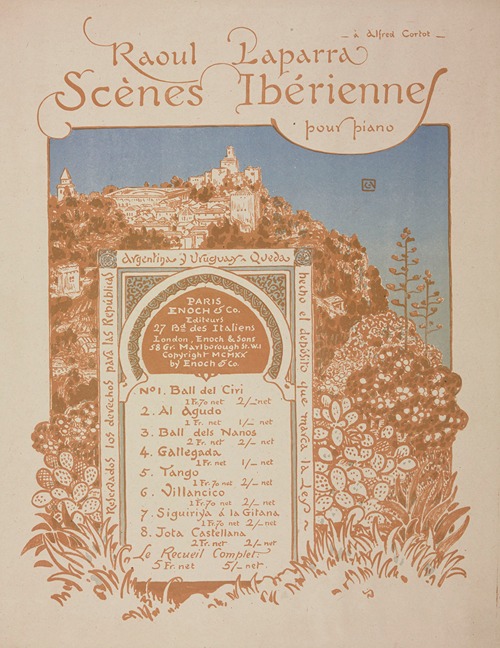 - à Alfred Cortot -
Raoul Laparra
Scènes Ibériennes
pour piano
Argentina y Uruguay Queda
Reservados los derechos para las Repúblicas
hecho el depósito que marca la Ley
PARIS
ENOCH & Co.
Editeurs
27 Bd. des Italiens
London, Enoch & Sons
58 Gt. Marlborough St. W.I
Copyright MCMXX
by Enoch & Co.
No 1. Ball del Ciri
1 Fr. 70 net 2/- net
2. Al Agudo
1 Fr. net 1/- net
3. Ball dels Nanos
2 Fr. net 2/- net
4. Gallegada
1 Fr. net 1/- net
5. Tango
1 Fr. 70 net 2/- net
6. Villancico
1 Fr. 70 net 2/- net
7. Siguiriya á la Gitana
1 Fr. 70 net 2/- net
8. Jota Castellana
2 Fr. net 2/- net
Le Recueil Complet:
5 Fr. net 5/- net.